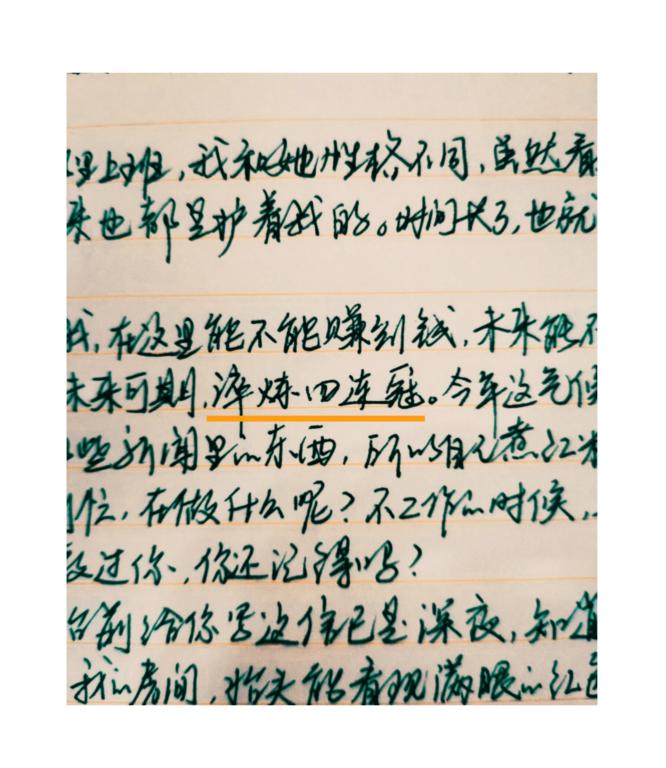 里上班,我和她性格不同,虽然看
来也都是护着我的。时间长了,也就
我,在这里能不能赚到钱,未来能不
未来可期,淬炼四连冠。今年这气候
些新闻里的东西,所以自己煮红米
位,在做什么呢?不工作的时候,
过你,你还记得吗?
台前给你写这信已是深夜,知道
我的房间,抬头能看现满眼的红色